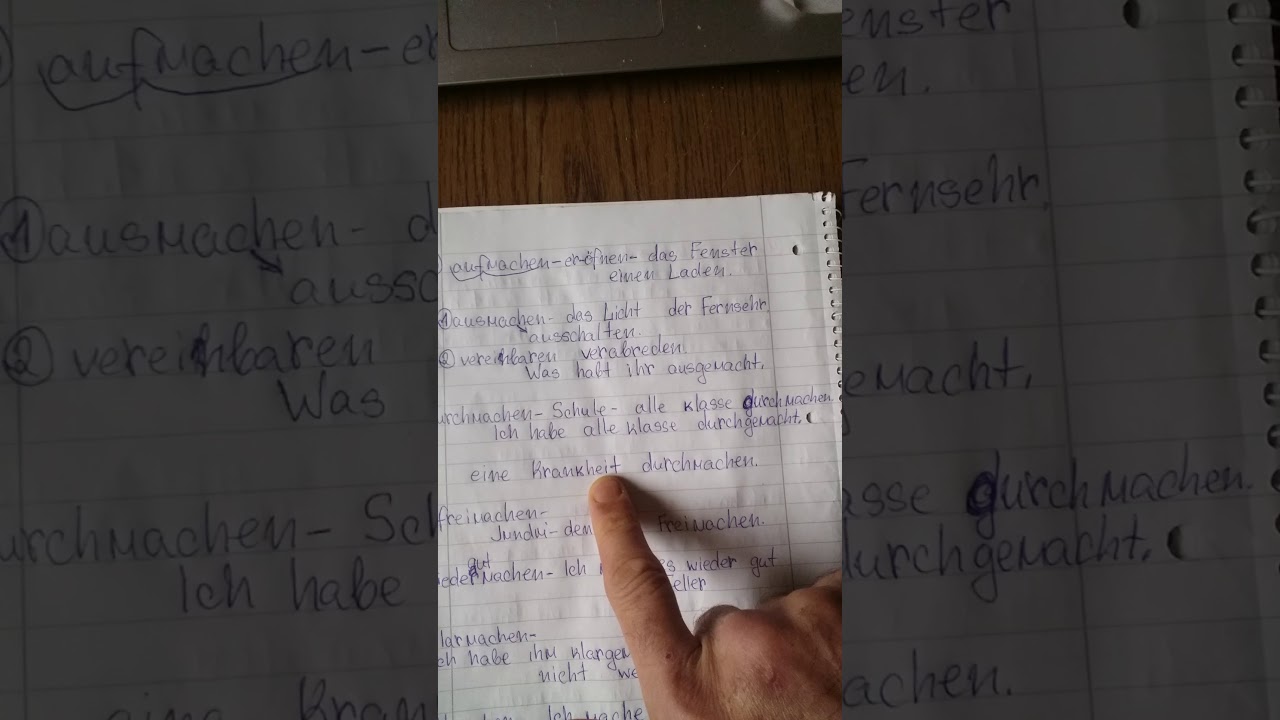 aufmachen-er-öfnen- das Fenster
einen Laden.
①ausmachen- das Licht der Fernsehr
ausschalten.
②vereinbaren verabreden.
Was habt ihr ausgemacht.
urchmachen- Schule- alle klasse durchmachen.
Ich habe alle klasse durchgemacht.
eine Krankheit durchmachen.
freimachen-
Freimachen.
gut
machen- Ich es wieder gut
eller
larmachen-
ch habe ihm klargem
nicht we
Ich mache